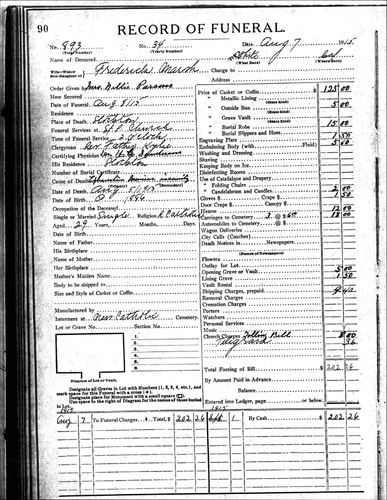 90
RECORD OF FUNERAL.
No. 893 No. 34 Date, Aug 7 1915
(Total Number) (Yearly Number)
Name of Deceased, White Col
(What Race) (Where Born)
Fredericka Marsh Charge to
Address
Order Given Mrs Willis Parsons
How Secured
Date of Funeral Aug 8/15
Residence
Place of Death
Funeral Services at Church
Time of Funeral Service 2 o'clock
Clergyman Rev. Father
Certifying Physician
His Residence
Number of Burial Certificate
Cause of Death
Date of Death Aug 5/1915
Date of Birth 1886
Occupation of the Deceased
Single or Married Single Religion R. Catholic
Aged 29 Years, Months, Days.
Date of Birth
Name of Father
His Birthplace
Name of Mother
Her Birthplace
Mother's Maiden Name
Body to be shipped to
Size and Style of Casket or Coffin
Manufactured by
Interment at New Catholic Cemetery.
Lot or Grave No. Section No.
1.
2.
3.
4.
5.
6.
Diagram of Lot or Vault.
Designate all Graves in Lot with Numbers (1, 2, 3, 4, etc.), and
mark space for this Funeral with a cross
Designate place for Monument with a small square
Use space to the right of Diagram for names of those buried
in Lot.
Price of Casket or Coffin $ 125 00
" Metallic Lining
(State kind)
" Outside Box 5 00
(State kind)
" Grave Vault
(State kind)
" Burial Robe 15 00
(State kind)
" Burial Slippers and Hose.
Engraving Plate 1 50
Embalming Body (with Fluid) 5 00
Washing and Dressing
Shaving
Keeping Body on Ice
Disinfecting Rooms
Use of Catafalque and Drapery
" Folding Chairs
" Candelabrum and Candles 2 00
Gloves 1 50
Door Crape
Hearse 12 00
Carriages to Cemetery 3 @ $6.00 18 00
Automobiles to Cemetery @ $
Wagon Deliveries
City Calls (Coaches)
Death Notices in Newspapers.
(Names of Newspapers)
Flowers
Outlay for Lot
Opening Grave or Vault 5 00
Lining Grave 1 50
Vault Rental
Shipping Charges, prepaid 9 40
Removal Charges
Cremation Charges
Porters
Watchers
Personal Services
Music
Church Charges Tolling Bell 1 00
Telegrams 36
Total Footing of Bill $ 202 26
By Amount Paid in Advance
Balance
Entered into Ledger, page or below. $
1915 1915
Aug 7 To Funeral Charges Total, $ 202 26 Sept 1 By Cash $ 202 26